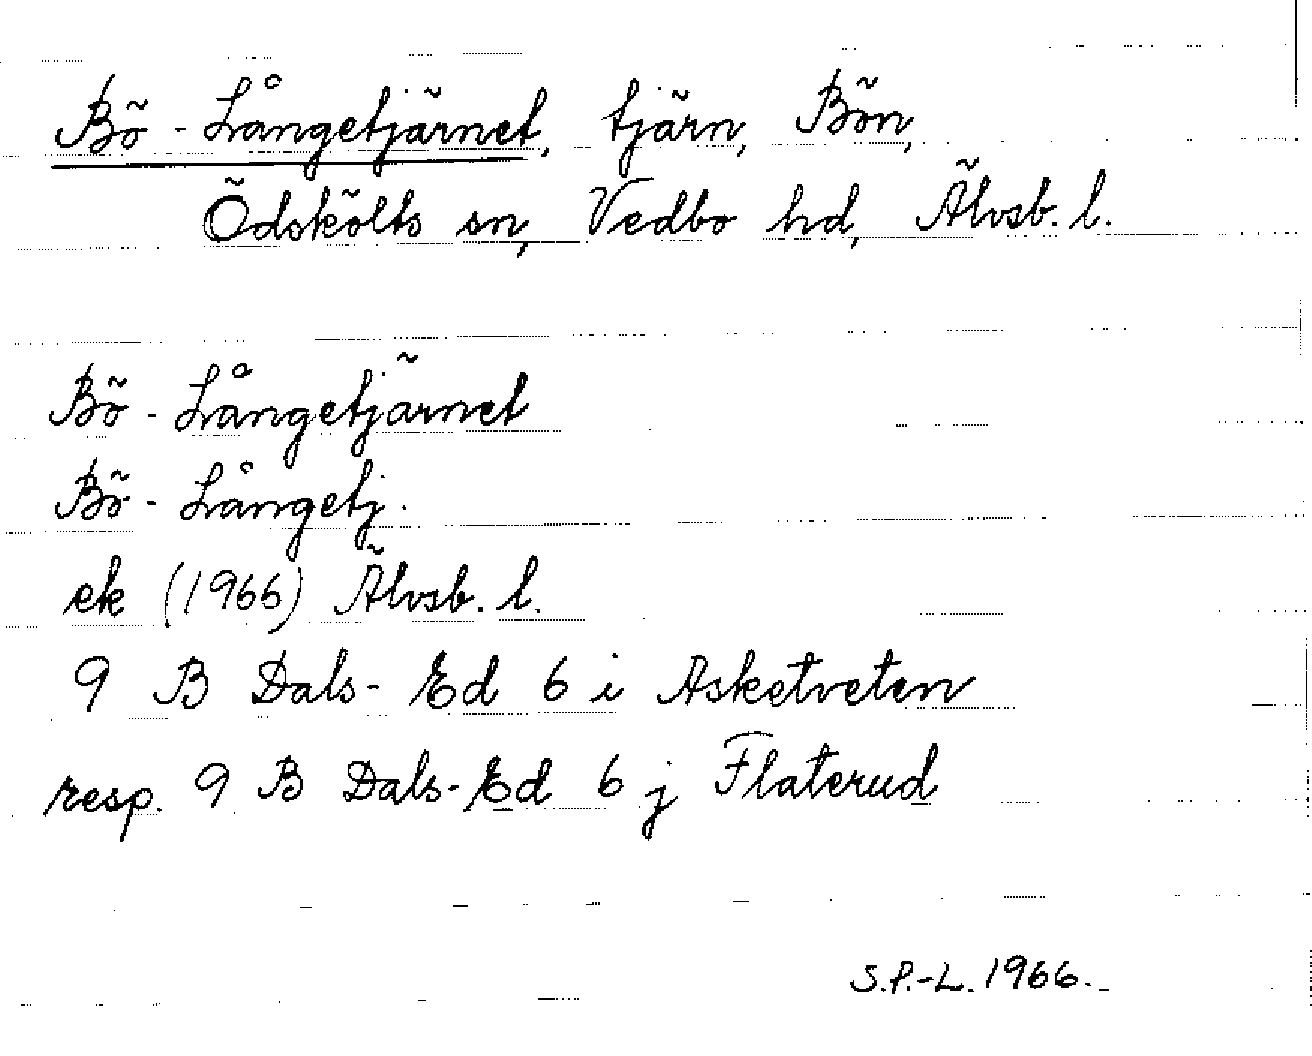 Bö-Långetjärnet, tjärn, Bön,
Ödskölts sn, Vedbo hd, Älvsb. l.
Bö-Långetjärnet
Bö-Långetj.
ek (1966) Älvsb. l.
9 B Dals-Ed 6 i Asketveten
resp. 9 B Dals-Ed 6 j Flaterud
S.P.-L. 1966.